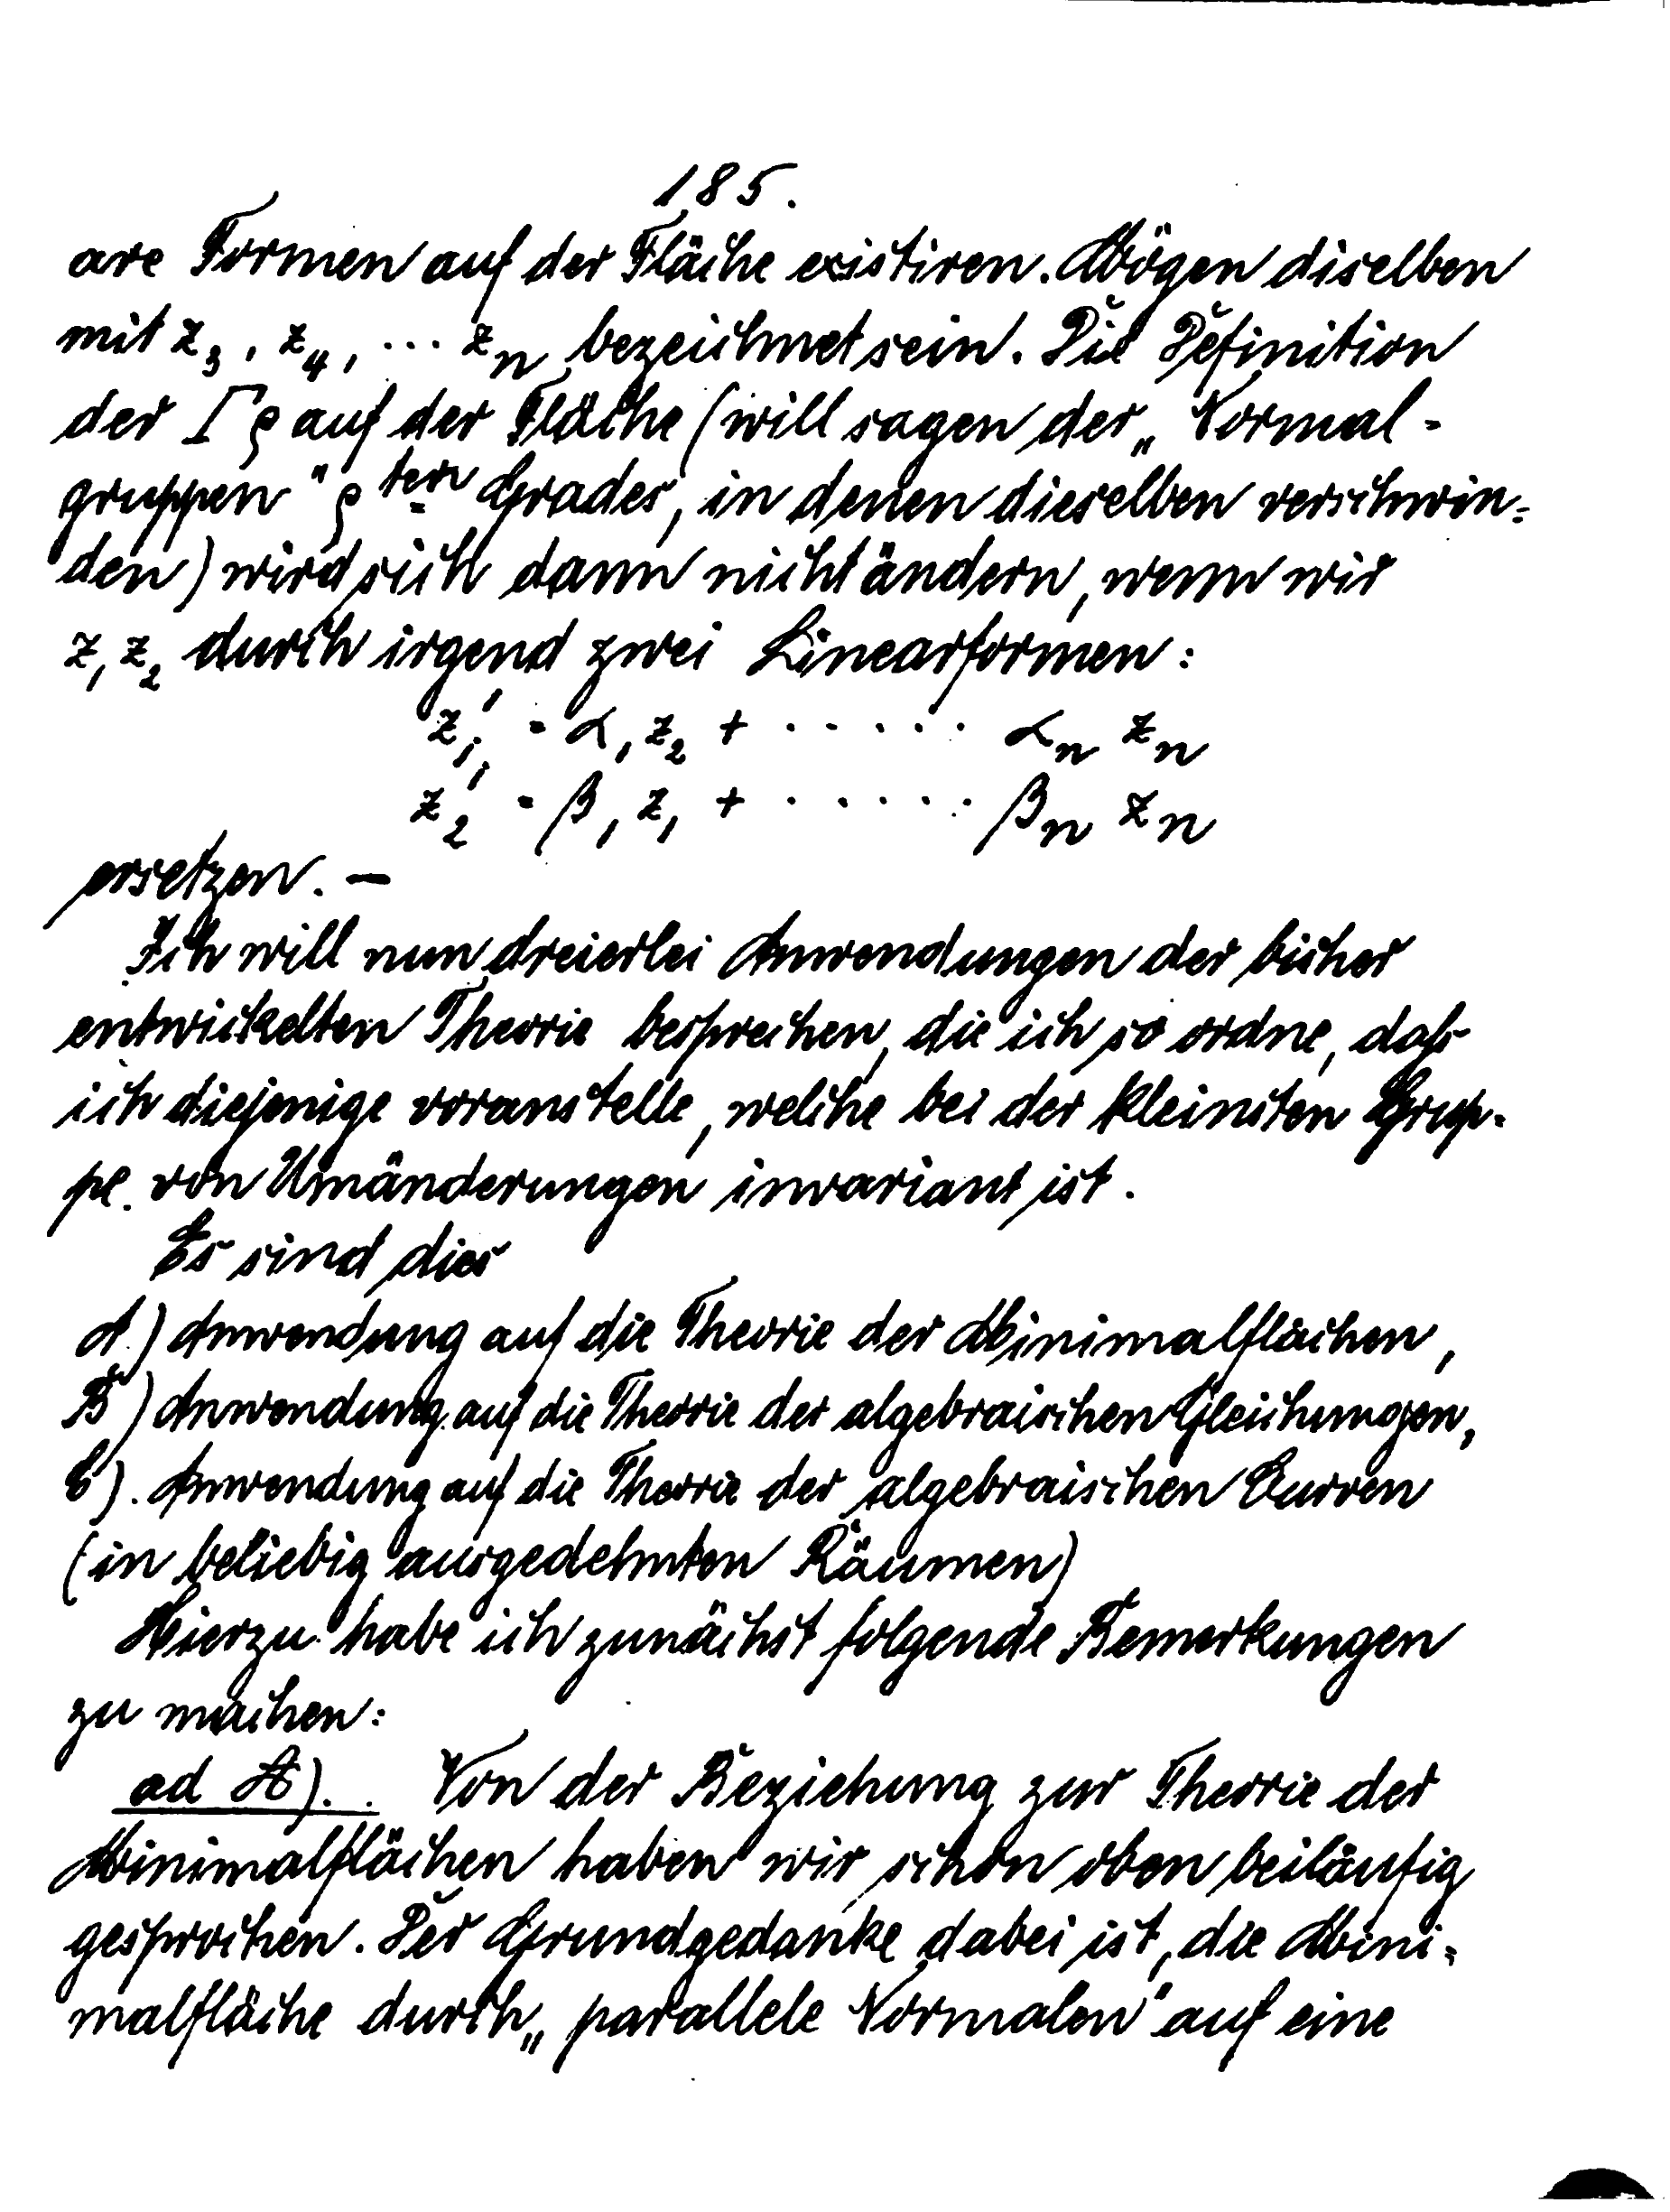 185.
are Formen auf der Fläche existiren. Mögen diselben
mit z₃, z₄, ... zₙ bezeichnet sein. Die Definition
der Γρ auf der Fläche (will sagen der „Normal-
gruppen" ρten Grades, in denen dieselben verschwin-
den) wird sich dann nicht ändern, wenn wir
z₁ z₂ durch irgend zwei Linearformen:
z₁' = α₁ z₂ + ...... αₙ zₙ
z₂' = β₁ z₁ + ...... βₙ zₙ
ersetzen. —
Ich will nun dreierlei Anwendungen der bisher
entwickelten Theorie besprechen, die ich so ordne, daß
ich diejenige voranstelle, welche bei der kleinsten Grup-
pe von Umänderungen invariant ist.
Es sind dies
A.) Anwendung auf die Theorie der Minimalflächen,
B) Anwendung auf die Theorie der algebraischen Gleichungen,
C). Anwendung auf die Theorie der algebraischen Curven
(in beliebig ausgedehnten Räumen)
Hierzu habe ich zunächst folgende Bemerkungen
zu machen:
ad A). Von der Beziehung zur Theorie der
Minimalflächen haben wir schon oben beiläufig
gesprochen. Der Grundgedanke dabei ist, die Mini-
malfläche durch „parallele Normalen" auf eine